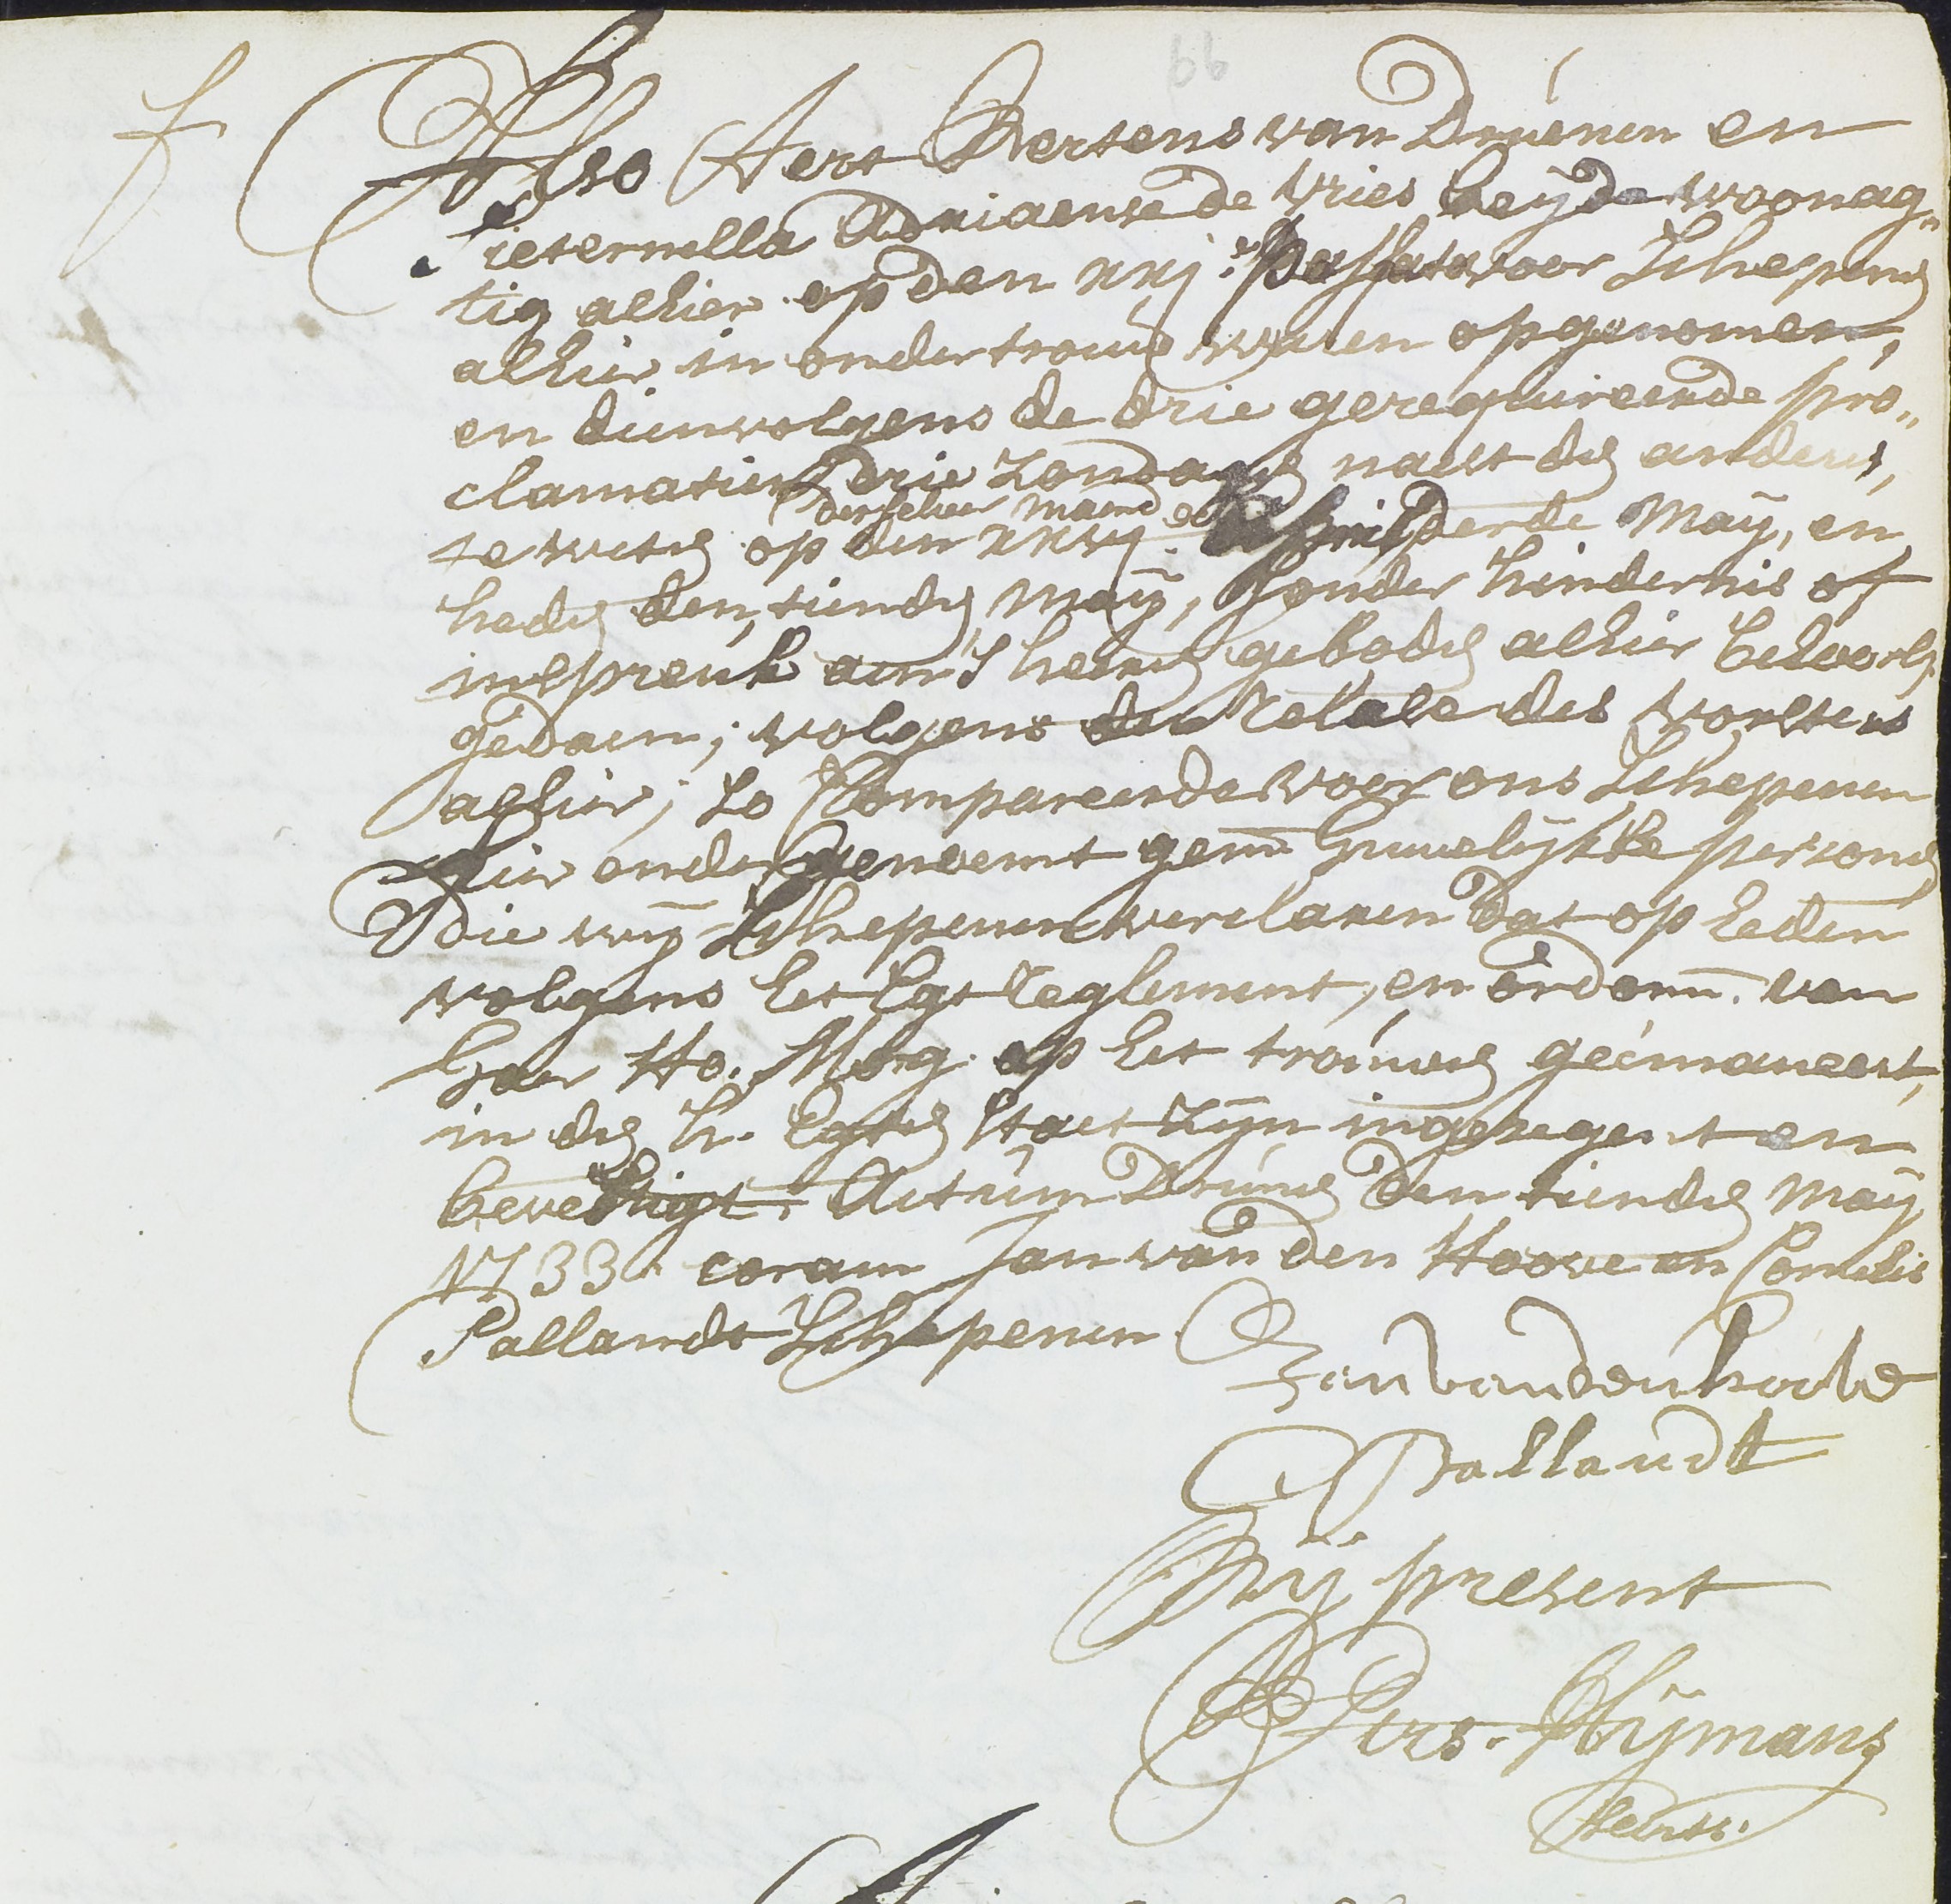 Also Aert Bertens van Drúnen en
Pieternella Adriaense de Vries beÿde woonag„
tig alhier op den xxj:e passato voor Schepens
alhier in ondertroúw waren opgenomen,
en dienvolgens de drie gerequireerde pro„
clamatien drie Zondagen naest den anderen,
derselver maend
te weten op den xxvj derde Maÿ, en
heden den tienden Maÿ, sonder hindernis of
inspreuk aen 's heeren geboden alhier behoorl.
gedaen; volgens de relase des vorsters
alhier; so Compareerde voor ons Schepenen
hier onder genoemt gem: houwelijkse persoonen
die wÿ Schepenen verclaren dat op heden
volgens het Egtreglement, en ordonn: van
haer Ho. Mog. op het troúwen geëmaneert,
in den h. Egten staet zÿn ingezegent en
bevestigt. Actúm Drúnen den tienden Maÿ
1733. coram Jan van den Hoove en Cornelis
Pallandt Schepenen
Jan van den hoove
C Pallandt
Mij present
Secrts.